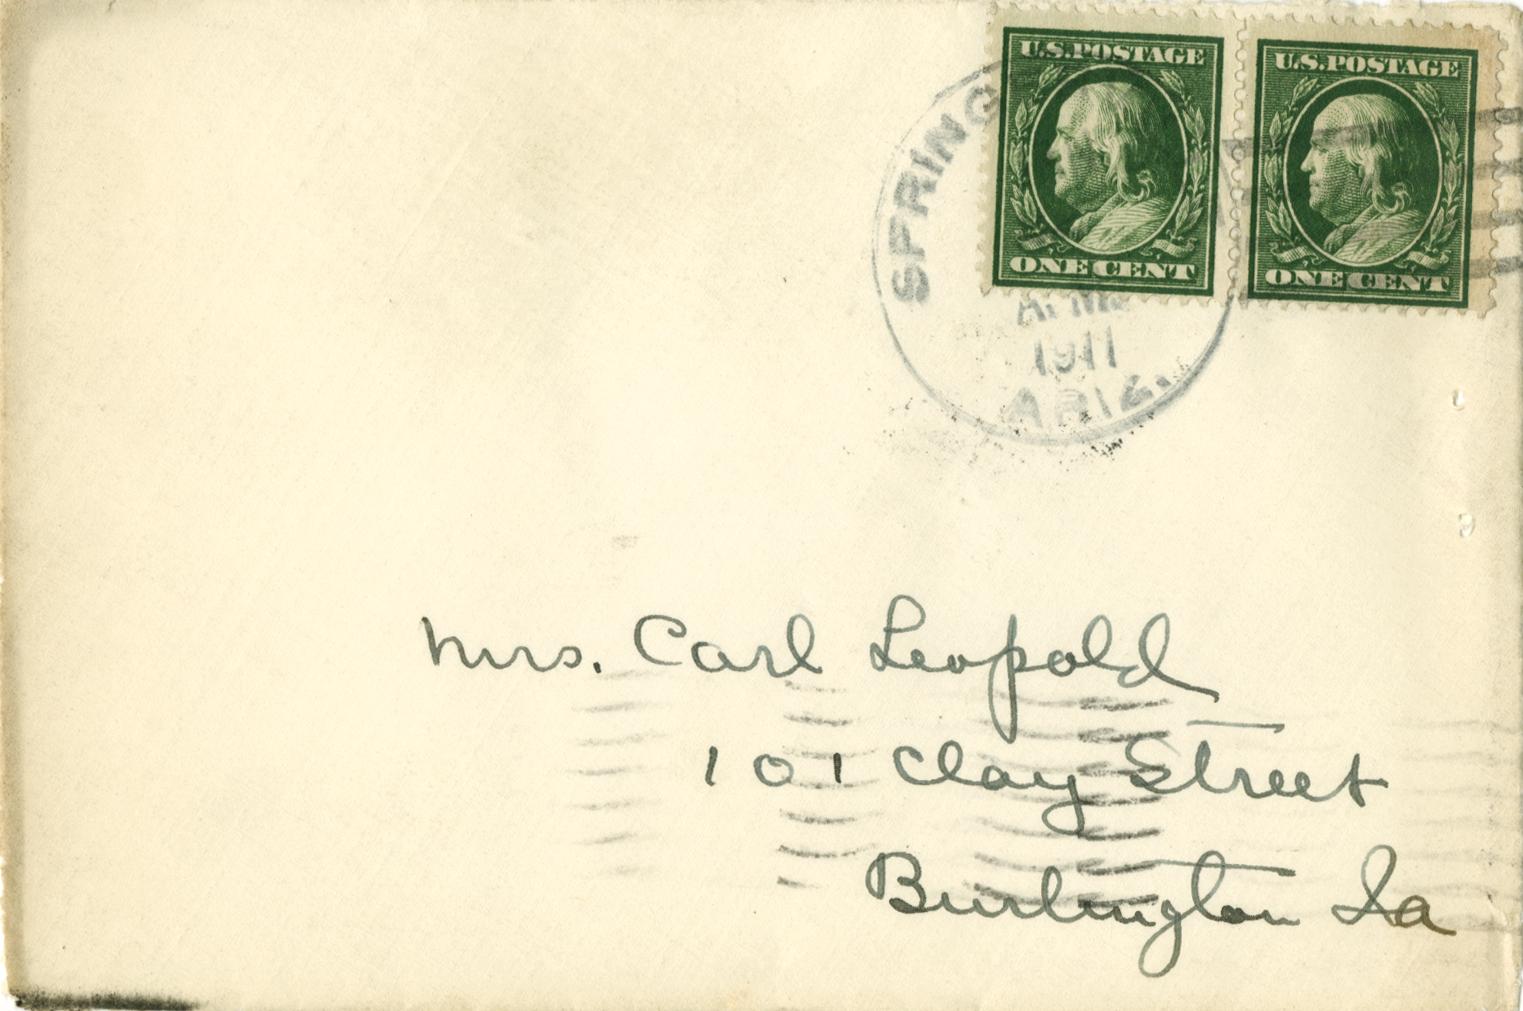 U.S.POSTAGE
U.S.POSTAGE
ONE CENT
ONE CENT
SPRING
1911
ARIZ.
Mrs. Carl Leopold
101 Clay Street
Burlington Ia